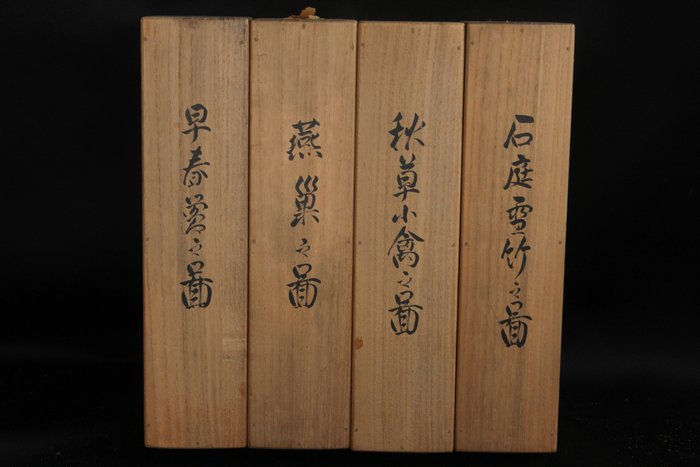 早春鶯之圖
燕巢之圖
秋草小禽之圖
石庭雪竹之圖